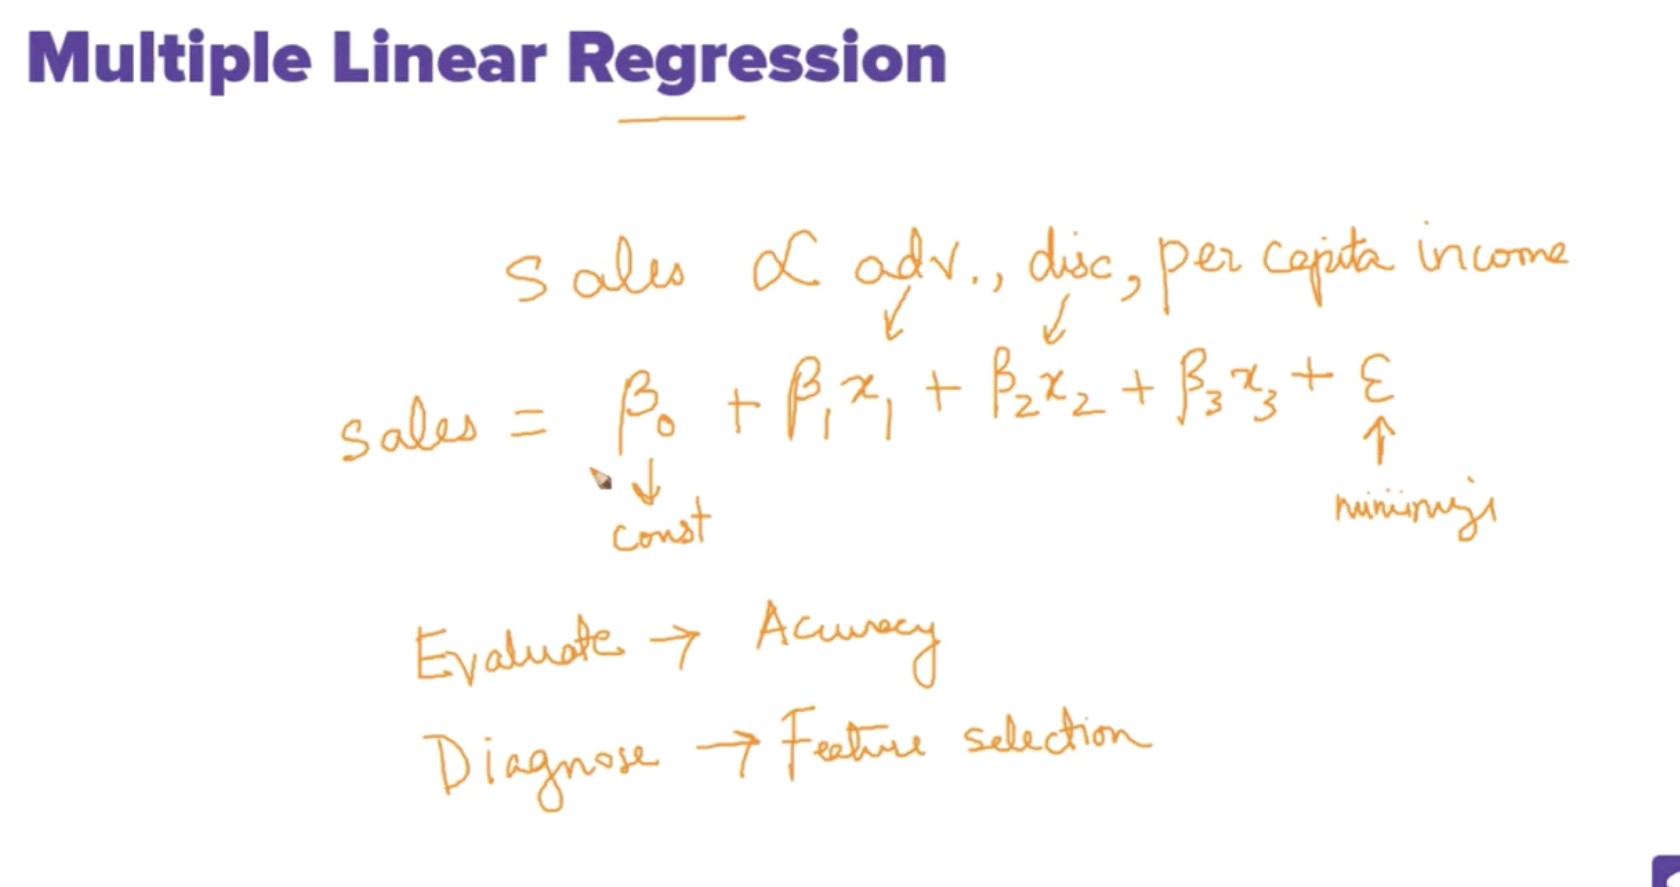 Multiple Linear Regression
Sales ∝ adv., disc, per capita income
Sales = β₀ + β₁x₁ + β₂x₂ + β₃x₃ + ε
const
Evaluate → Accuracy
Diagnose → Feature selection